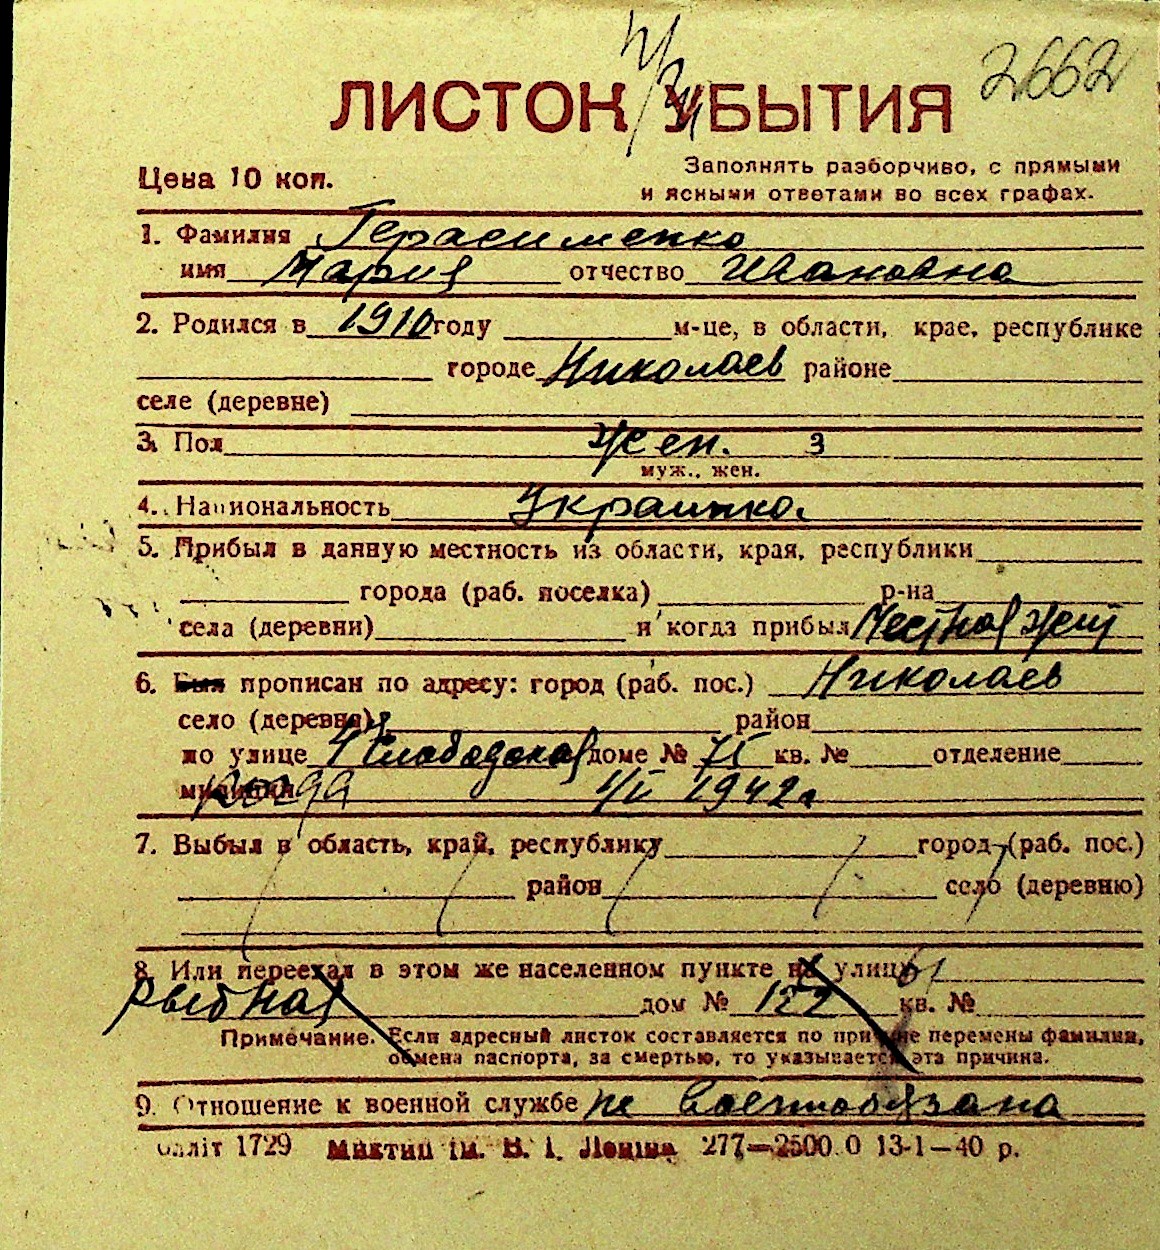 2662
ЛИСТОК УБЫТИЯ
Цена 10 коп.
Заполнять разборчиво, с прямыми
и ясными ответами во всех графах.
1. Фамилия Герасименко
имя Мария отчество Ивановна
2. Родился в 1910 году м-це, в области, крае, республике
городе Николаев районе
селе (деревне)
3. Пол жен. 3
муж., жен.
4. Национальность Украинка.
5. Прибыл в данную местность из области, края, республики
города (раб. поселка) р-на
села (деревни) и когда прибыл Местная жит
6. Был прописан по адресу: город (раб. пос.) Николаев
село (деревня) район
по улице Слободская доме № 75 кв. № отделение
милиции когда 1/II 1942 г
7. Выбыл в область, край, республику город (раб. пос.)
район село (деревню)
8. Или переехал в этом же населенном пункте на улицу
Рыбная дом № 122 кв. №
Примечание. Если адресный листок составляется по причине перемены фамилии,
обмена паспорта, за смертью, то указывается эта причина.
9. Отношение к военной службе не военнообязана
1729 Миктип ім. В. І. Леніна 277—2500.0 13-1—40 р.